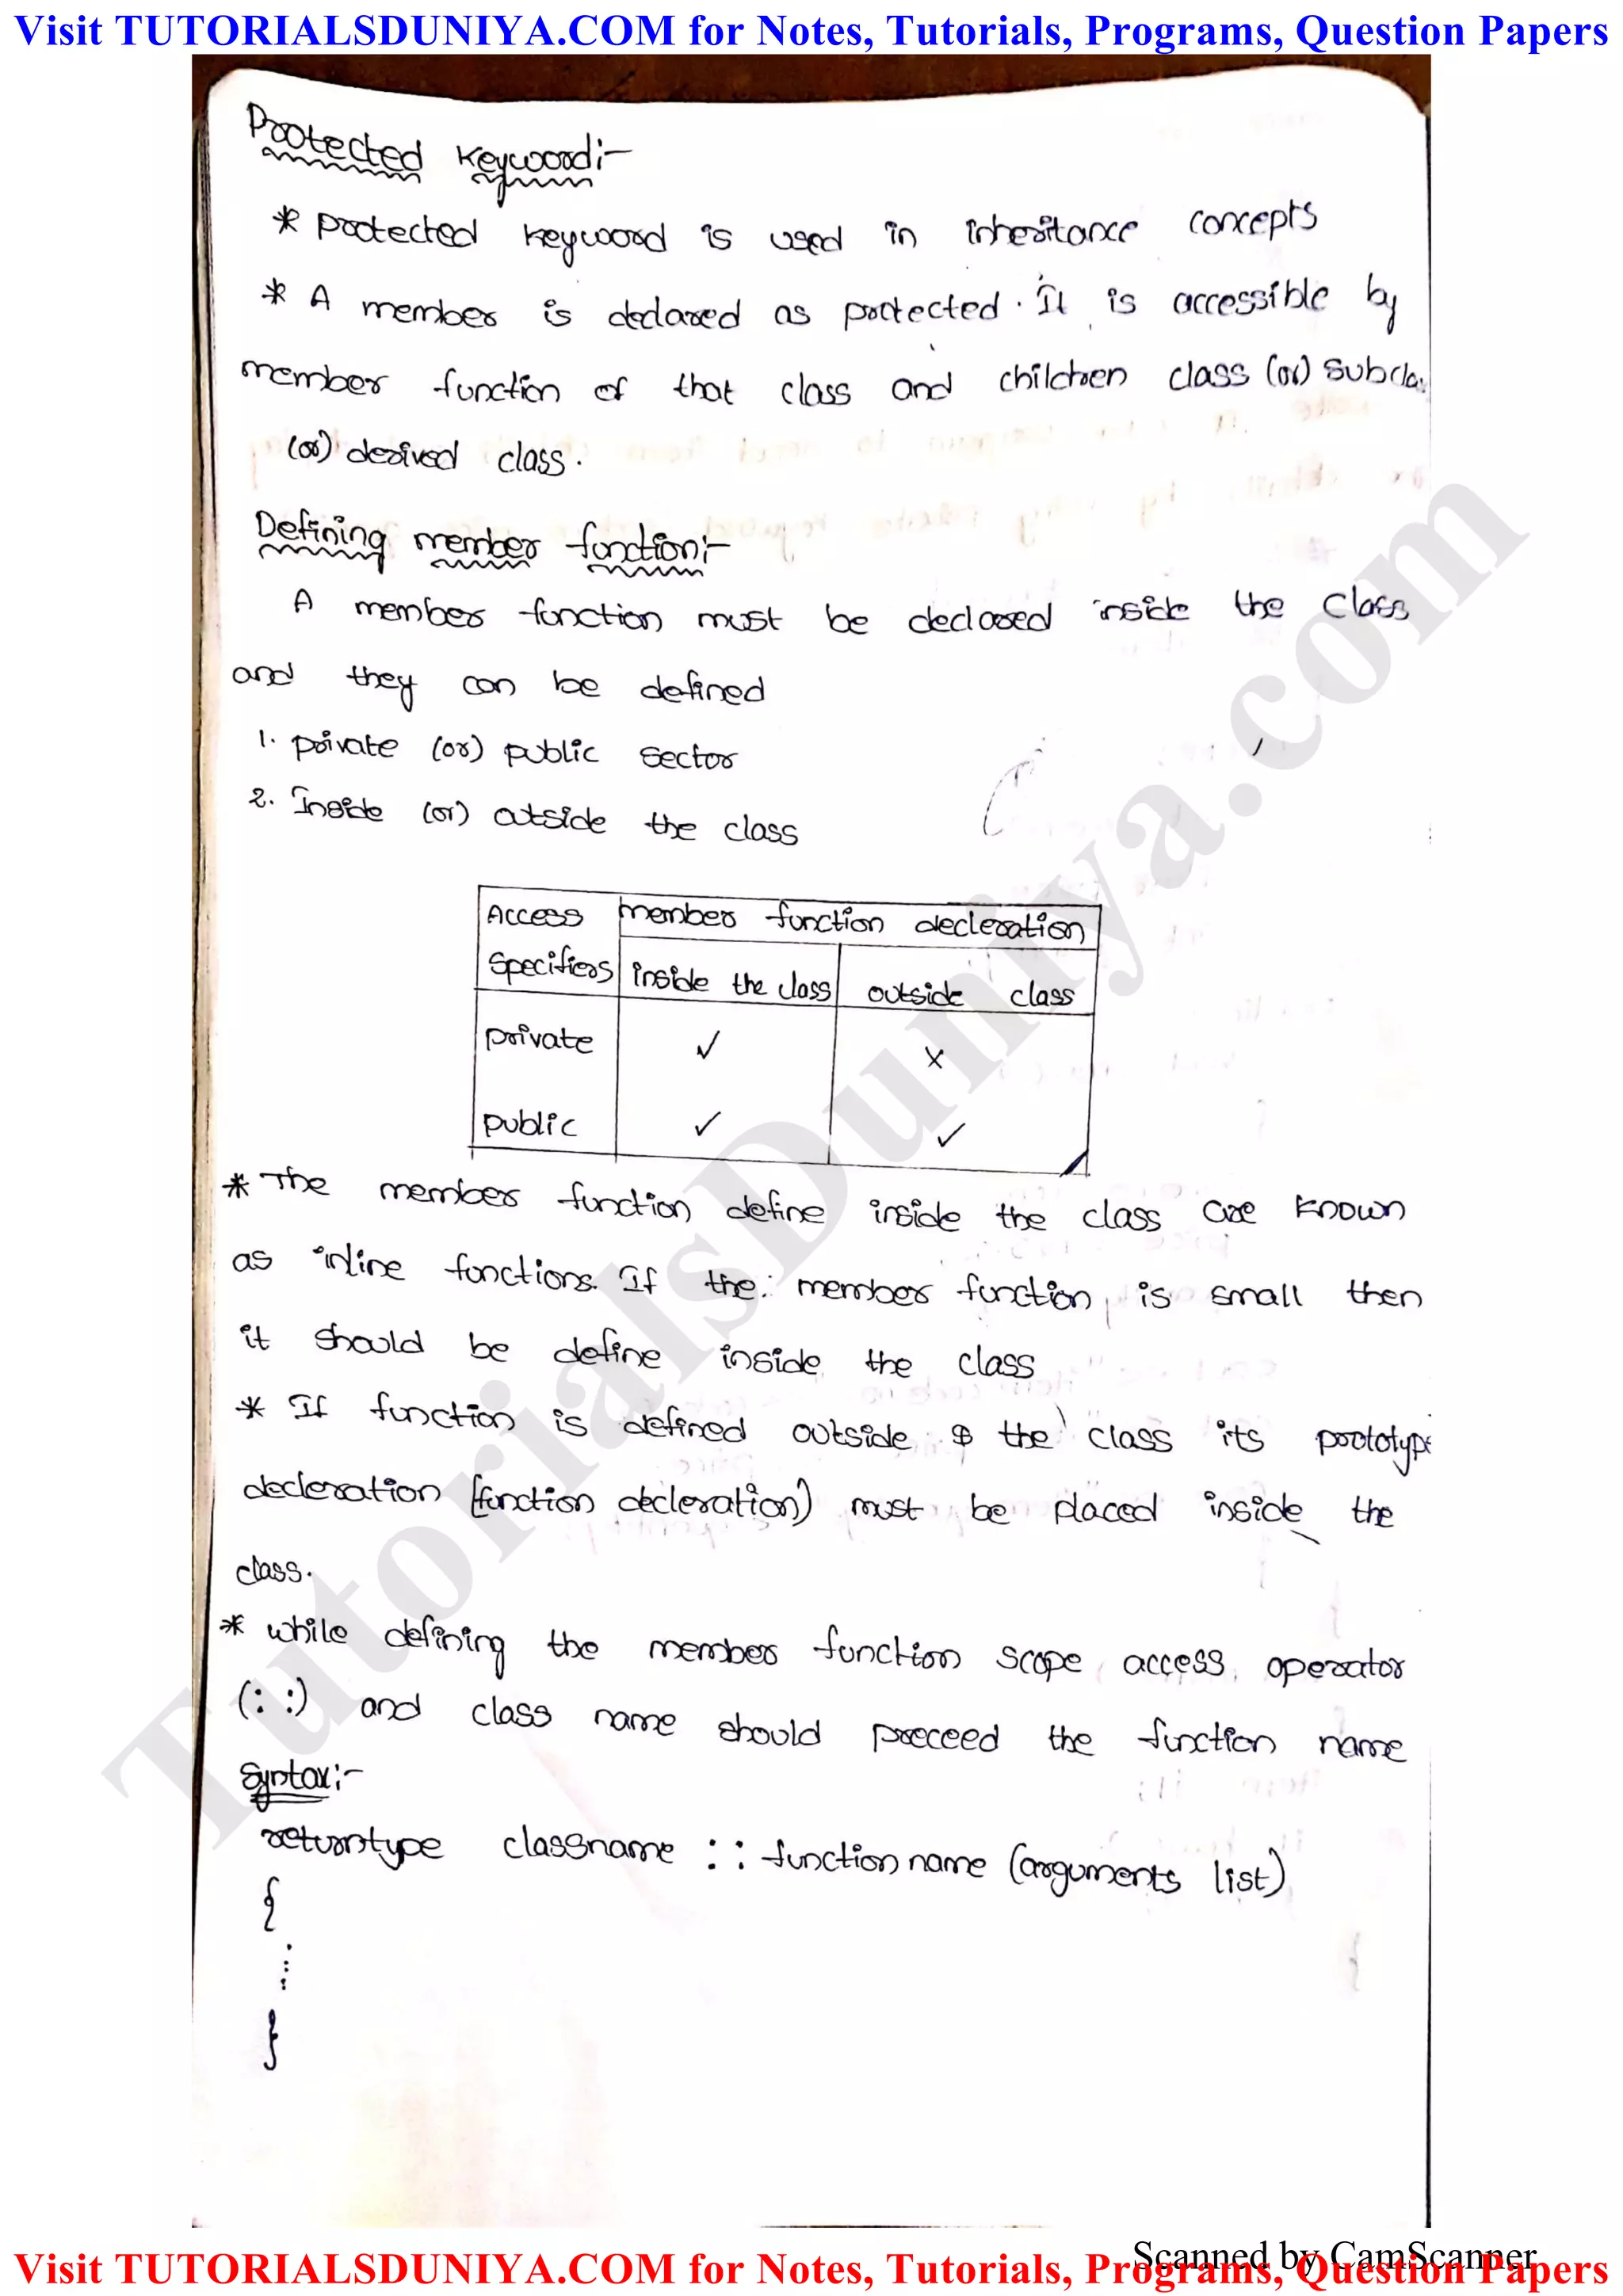 Visit TUTORIALSDUNIYA.COM for Notes, Tutorials, Programs, Question Papers
Protected Keyword:-
* Protected keyword is used in inheritance concepts
* A member is declared as protected. It is accessible by
member function of that class and children class (or) subclas
(or) derived class.
Defining member function:-
A member function must be declared inside the class
and they can be defined
1. private (or) public sector
2. Inside (or) outside the class
Access member function decleration
Specifiers inside the class outside class
private ✓ x
public ✓ ✓
* The member function define inside the class are known
as inline functions. If the member function is small then
it should be define inside the class
* If function is defined outside the class its prototype
decleration (function decleration) must be placed inside the
class.
* while defining the member function scope access operator
(: :) and class name should preceed the function name
Syntax:-
returntype classname : : function name (arguments list)
{
⋮
}
TutorialsDuniya.com
Scanned by CamScanner
Visit TUTORIALSDUNIYA.COM for Notes, Tutorials, Programs, Question Papers